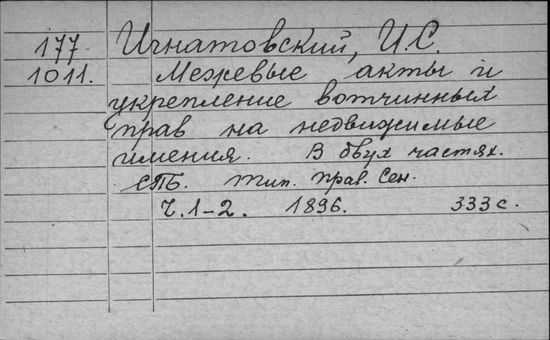 177 Игнатовский, И.С.
1011. Межевые акты и
укрепление вотчинных
прав на недвижимые
имения. В двух частях.
СПБ. тип. прав. Сен.
Ч. 1-2. 1896. 333 с.